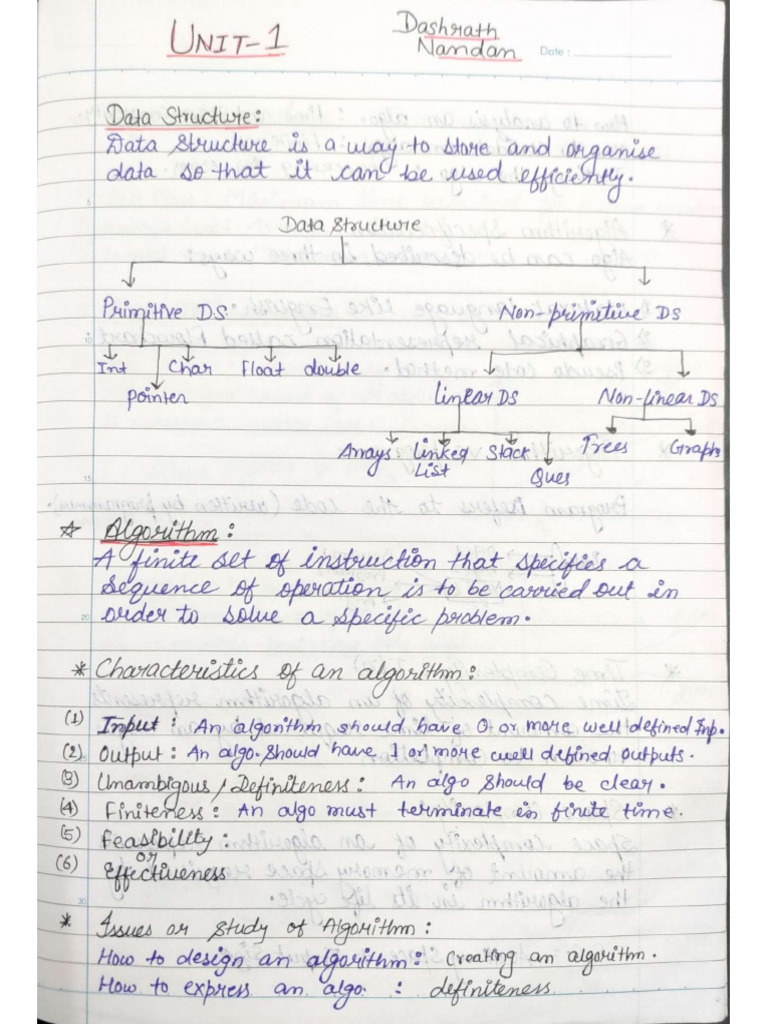 UNIT-1
Dashrath
Nandan
Date :
Data Structure:
Data Structure is a way to store and organise
data so that it can be used efficiently.
Data Structure
Primitive DS. Non-primitive DS
Int Char Float double
pointer
linear DS Non-linear DS
Arrays Linked Stack Trees Graphs
List Ques
☆ Algorithm :
A finite set of instruction that specifies a
sequence of operation is to be carried out in
order to solve a specific problem.
* Characteristics of an algorithm :
(1) Input : An algorithm should have 0 or more well defined Inp.
(2) Output : An algo. should have 1 or more well defined outputs.
(3) Unambigous / Definiteness : An algo should be clear.
(4) Finiteness : An algo must terminate in finite time.
(5) Feasibility :
or
(6) Effectiveness
* Issues or study of Algorithm :
How to design an algorithm : Creating an algorithm.
How to express an algo. : definiteness